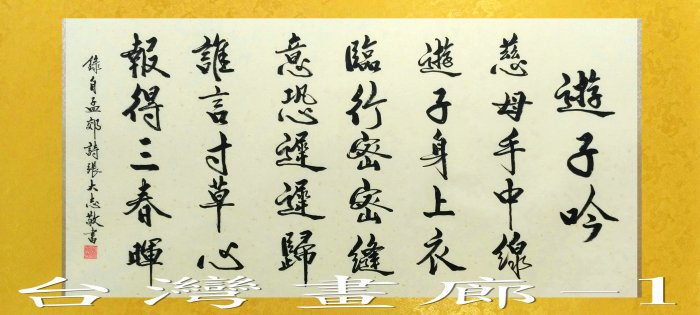 遊子吟
慈母手中線
遊子身上衣
臨行密密縫
意恐遲遲歸
誰言寸草心
報得三春暉
錄自孟郊詩張大志敬書
台灣畫廊-1